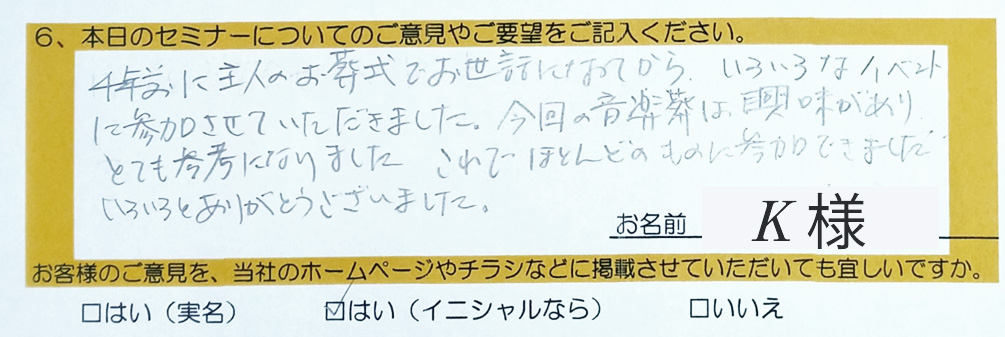 6、本日のセミナーについてのご意見やご要望をご記入ください。
4年前に主人のお葬式でお世話になってから、いろいろなイベント
に参加させていただきました。今回の音楽葬は興味があり、
とても参考になりました これで ほとんどのものに参加できました
いろいろとありがとうございました。
お名前 K様
お客様のご意見を、当社のホームページやチラシなどに掲載させていただいても宜しいですか。
□はい（実名） ☑はい（イニシャルなら） □いいえ